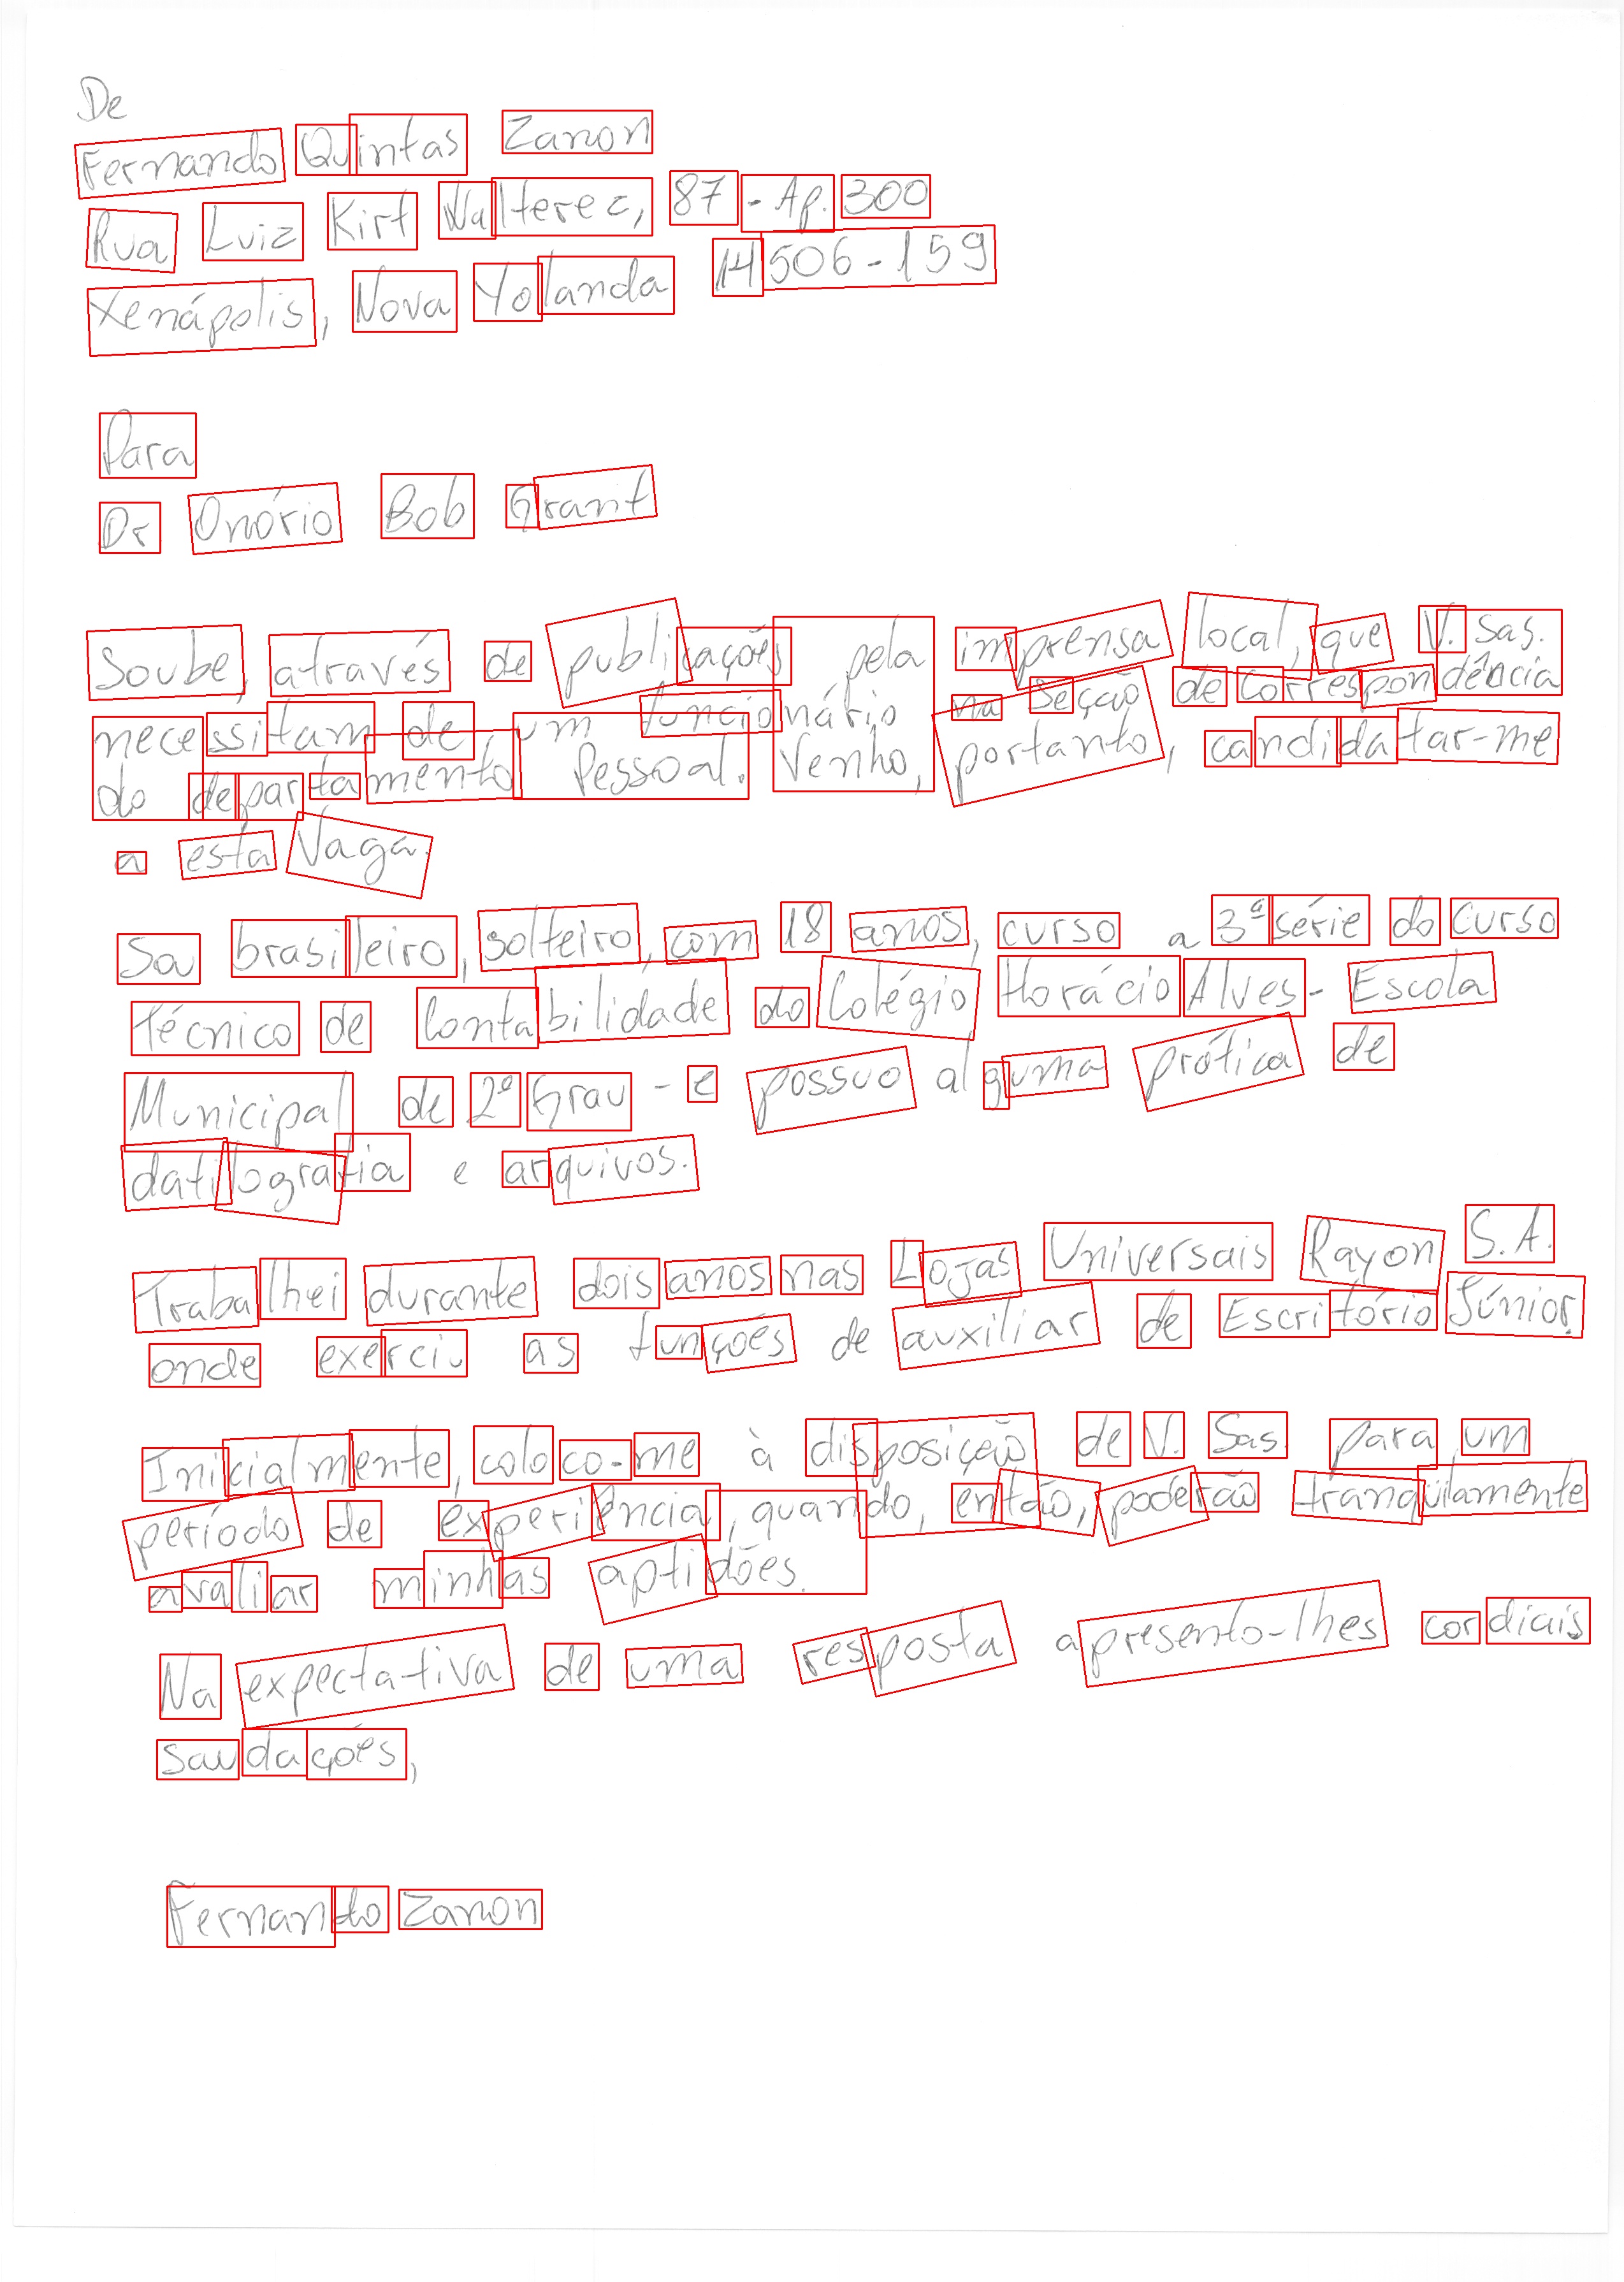 De
Fernando Quintas Zanon
Rua Luiz Kirt Walterez, 87 - Ap. 300
Xenápolis, Nova Yolanda 14506-159
Para
Dr Onório Bob Grant
Soube, através de publicações pela imprensa local, que V. Sas.
necessitam de um funcionário na seção de correspondência
do departamento Pessoal. Venho, portanto, candidatar-me
a esta Vaga.
Sou brasileiro, solteiro, com 18 anos, curso a 3ª série do curso
Técnico de Contabilidade do Colégio Horácio Alves - Escola
Municipal de 2º Grau - e possuo alguma prática de
datilografia e arquivos.
Trabalhei durante dois anos nas Lojas Universais Rayon S.A.
onde exerci as funções de auxiliar de Escritório Júnior.
Inicialmente, coloco-me à disposição de V. Sas. para um
período de experiência, quando, então, poderão tranqüilamente
avaliar minhas aptidões.
Na expectativa de uma resposta apresento-lhes cordiais
saudações,
Fernando Zanon